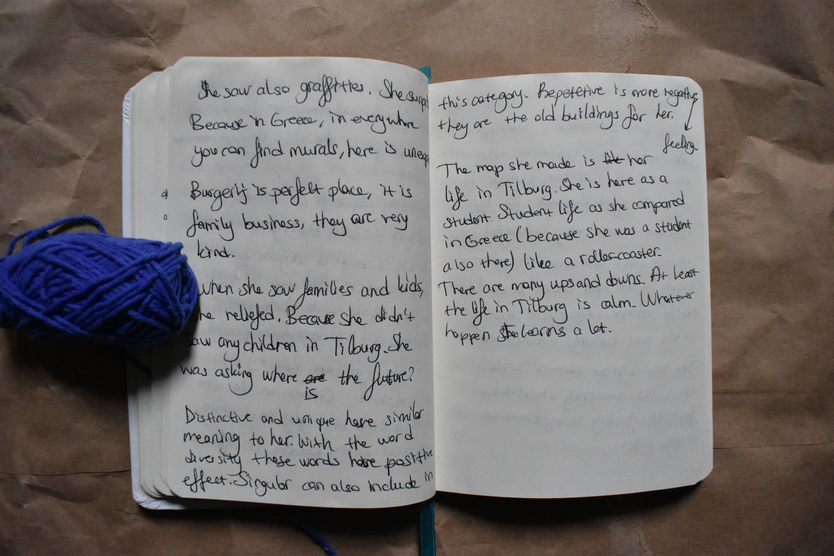 She saw also graffities. She surpri
Because in Greece, in everywhere
you can find murals, here is unexp
Burgerij is perfekt place, it is
family business, they are very
kind.
When she saw families and kids,
she reliefed. Because she didn't
saw any children in Tilburg. She
was asking where are the future?
is
Distinctive and unique have similar
meaning to her. With the word
diversity these words have positive
effect. Singular can also include in
this category. Repetetive is more negative
they are the old buildings for her.
feeling.
The map she made is like her
life in Tilburg. She is here as a
student. Student life as she compared
in Greece (because she was a student
also there) like a rollercoaster.
There are many ups and downs. At least
the life in Tilburg is calm. Whatever
happen she learns a lot.